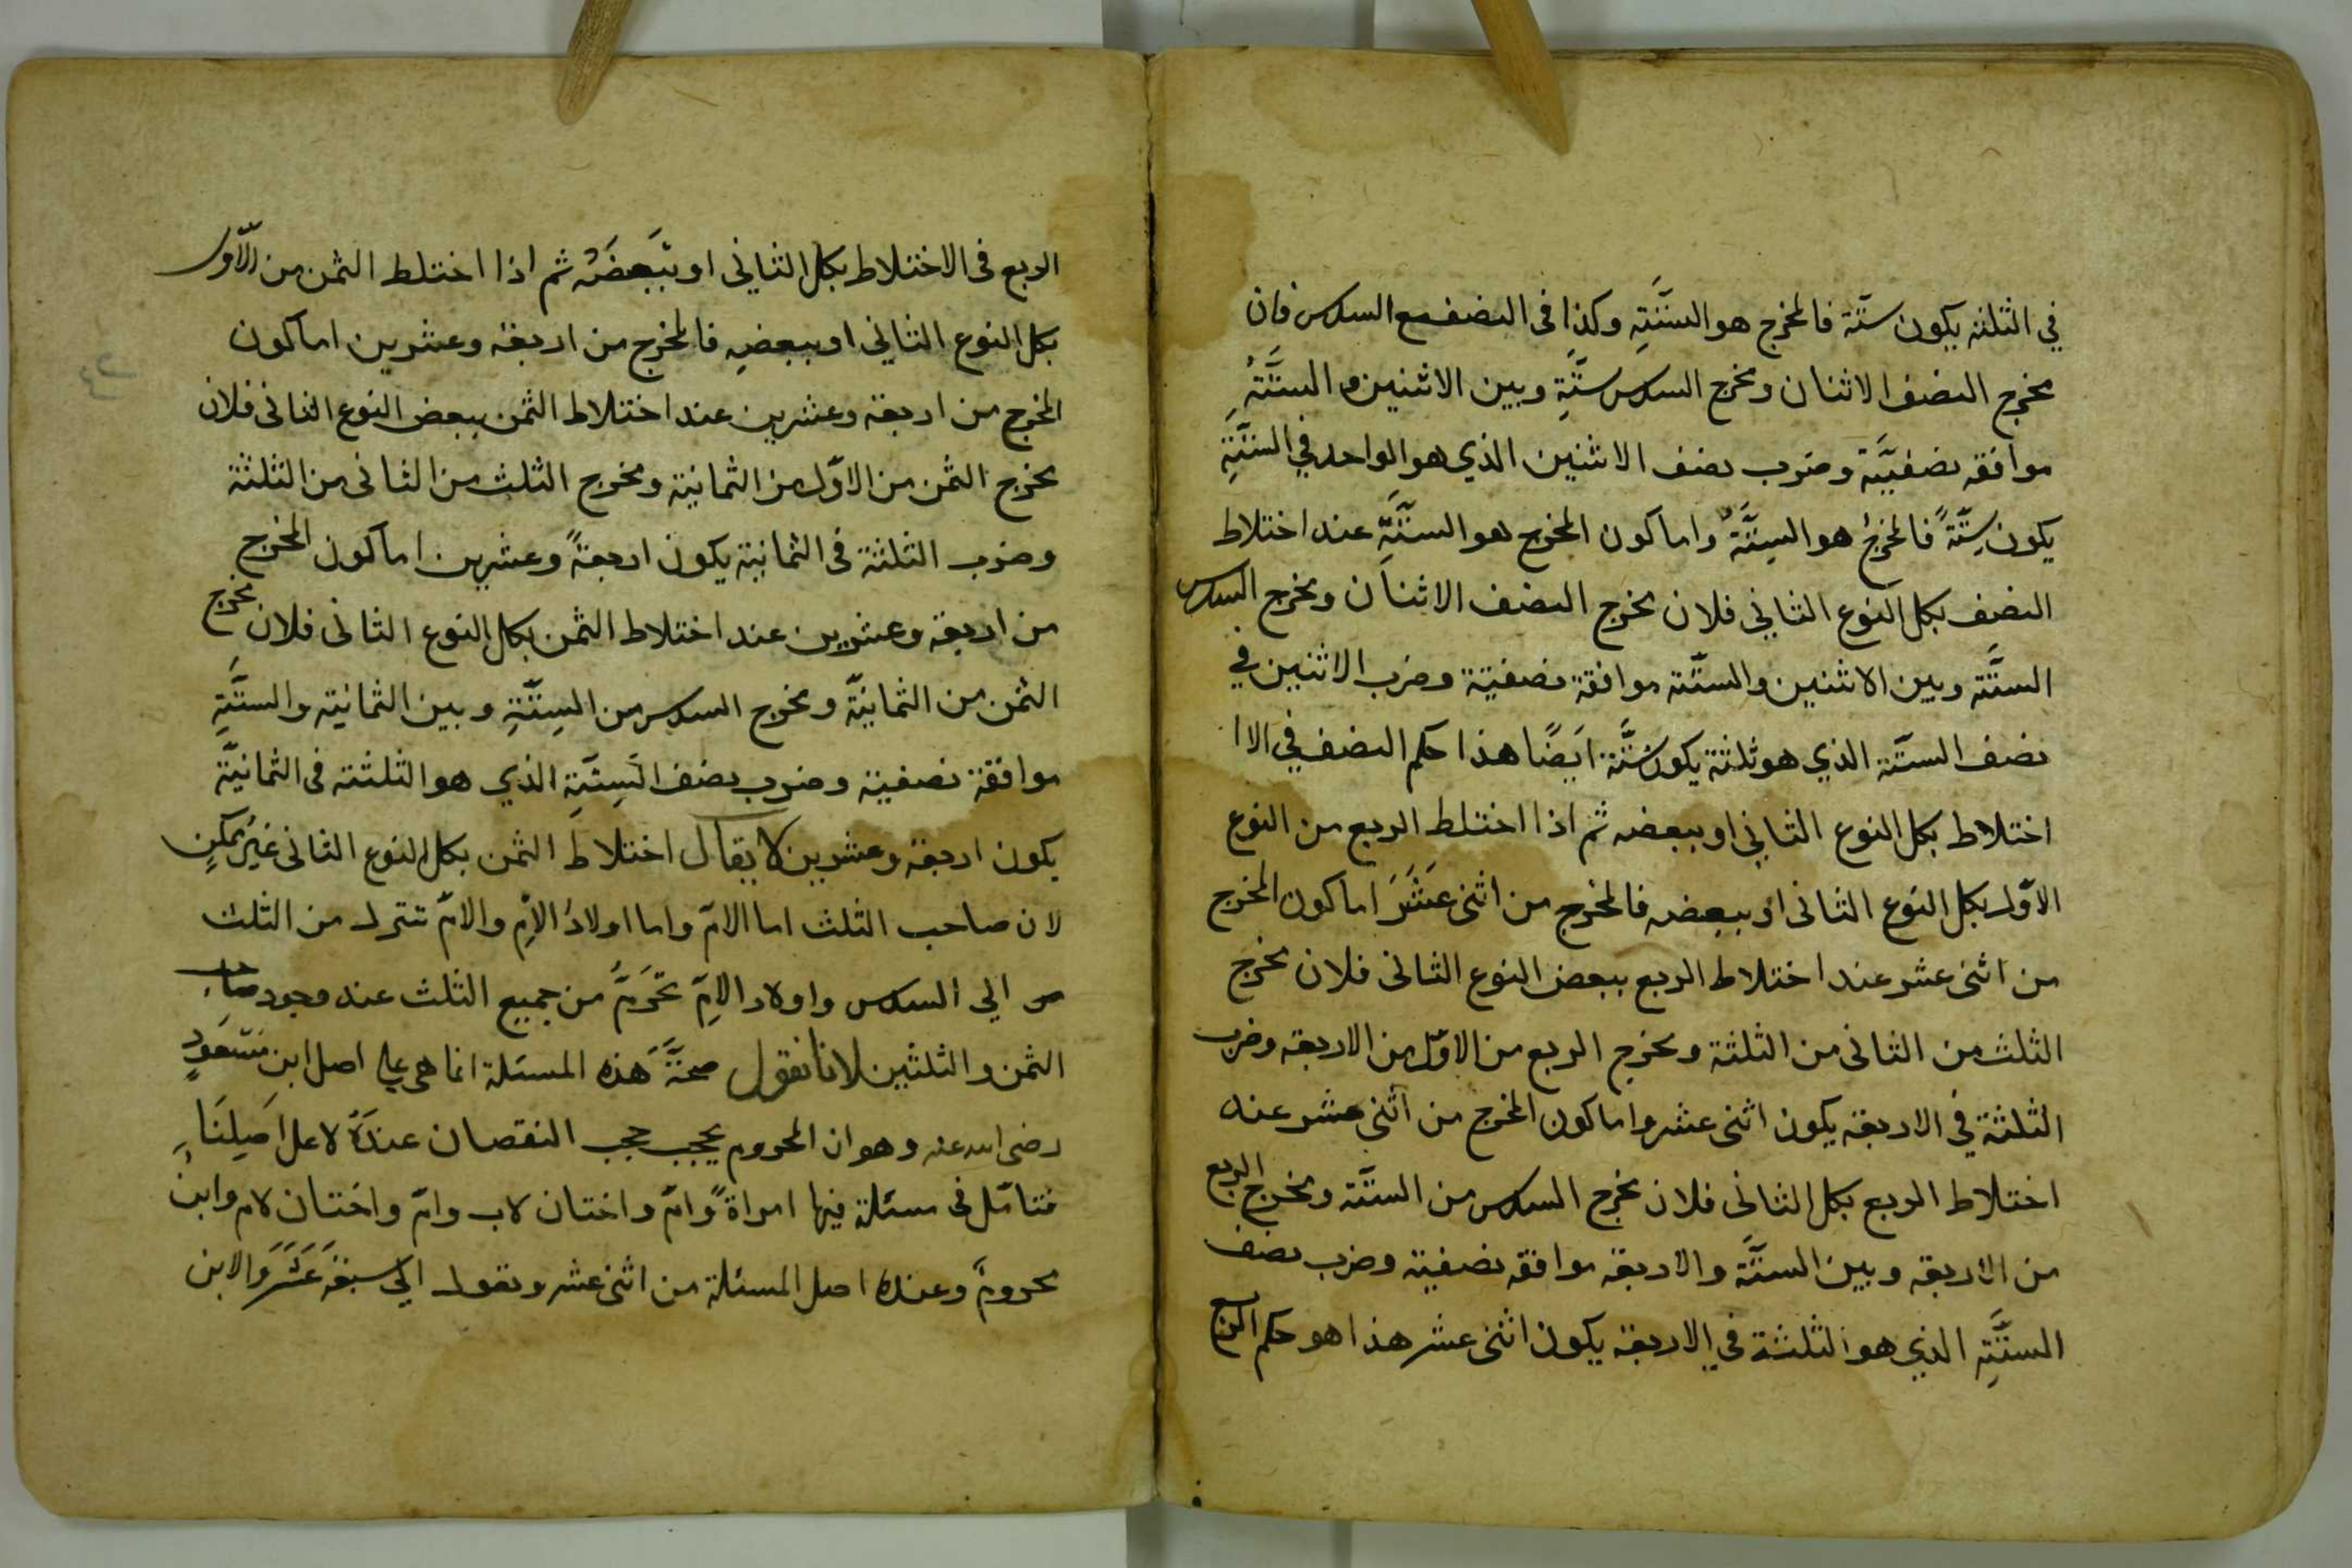 في الثلثة يكون ستّة فالمخرج هو السّتَّةِ وكذا فى النصف مع السدس فان
مخرج النصف الاثنان ومخرج السدس ستَّةٍ وبين الاثنين و السّتَّةِ
موافقه نصفيَّة وضرب نصف الاثنين الذي هو الواحد في الستَّةِ
يكون سِتَّةً فالمخرجُ هو السِتَّةُ واما كون المخرج هو الستَّةِ عند اختلاط
النصف بكل النوع الثاني فلان مخرج النصف الاثنان ومخرج السدس
الستَّة وبين الاثنين والستّة موافقة نصفيّة وضرب الاثنين في
نصف الستّة الذي هو ثلثة يكون ستَّة ايَضًا هذا حكم النصف في الا
اختلاط بكل النوع الثاني او ببعضه ثم اذا اختلط الربع من النوع
الاوّل بكل النوع الثانى او ببعضه فالمخرج من اثنى عَشَرَ اما كون المخرج
من اثنى عشر عند اختلاط الربع ببعض النوع الثانى فلان مخرج
الثلث من الثانى من الثلثة ومخرج الربع من الاوّل من الاربعة وضرب
الثلثة في الاربعة يكون اثنى عشر واما كون المخرج من اثنى عشر عند
اختلاط الربع بكل الثانى فلان مخرج السدس من الستَّة ومخرج الربع
من الاربعة وبين الستَّة والاربعة موافقه نصفيّة وضرب نصف
الستَّةِ الذي هو الثلثة في الاربعة يكون اثنى عشر هذا هو حكم الربع
الربع فى الاختلاط بكل الثاني او ببعضه ثم اذا اختلط الثمن من الاّول
بكل النوع الثاني او ببعضهِ فالمخرج من اربعة وعشرين اما كون
المخرج من اربعة وعشرين عند اختلاط الثمن ببعض النوع الثانى فلان
مخرج الثمن من الاوّل من الثمانية ومخرج الثلث من الثانى من الثلثة
وضرب الثلثة فى الثمانية يكون اربعةً وعشرين اما كون المخرج
من اربعة وعشرين عند اختلاط الثمن بكل النوع الثانى فلان مخرج
الثمن من الثمانيّة ومخرج السدس من السِتَّةِ وبين الثمانية والستَّةِ
موافقة نصفية وضرب نصف السِتَّةِ الذي هو الثلثة فى الثمانيّة
يكون اربعة وعشرين لا يقال اختلاط الثمن بكل النوع الثانى غيرُ ممكنٍ
لان صاحب الثلث اما الامّ واما اولادُ الاِم والامّ تنزل من الثلث
الي السدس واولاد الاِمّ تحْرَمُ من جميع الثلث عند وجود صاحب
الثمن والثلثين لانا نقول صحَّةَ هذه المسئلة انما هى على اصل ابن مَسْعَودٍ
رضى الله عنه وهو ان المحروم يحجب حجب النقصان عندَهُ لا على اصلِنَا
فتامّل فى مسئلة فيها امراةً وامّ واختان لاب وامّ واختان لام وابنٌ
محرومٌ وعنده اصل المسئلة من اثنى عشر وتعول الى سبعَةَ عَشَرَ والابن